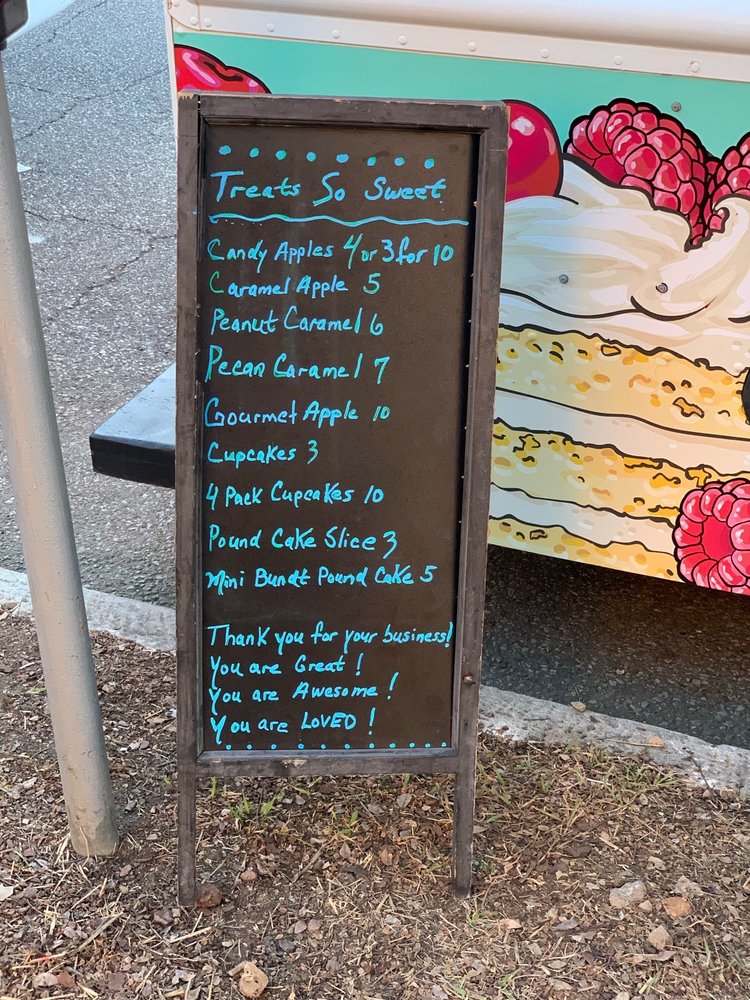 Treats So Sweet
Candy Apples 4 or 3 for 10
Caramel Apple 5
Peanut Caramel 6
Pecan Caramel 7
Gourmet Apple 10
Cupcakes 3
4 Pack Cupcakes 10
Pound Cake Slice 3
Mini Bundt Pound Cake 5
Thank you for your business!
You are Great!
You are Awesome!
You are LOVED!